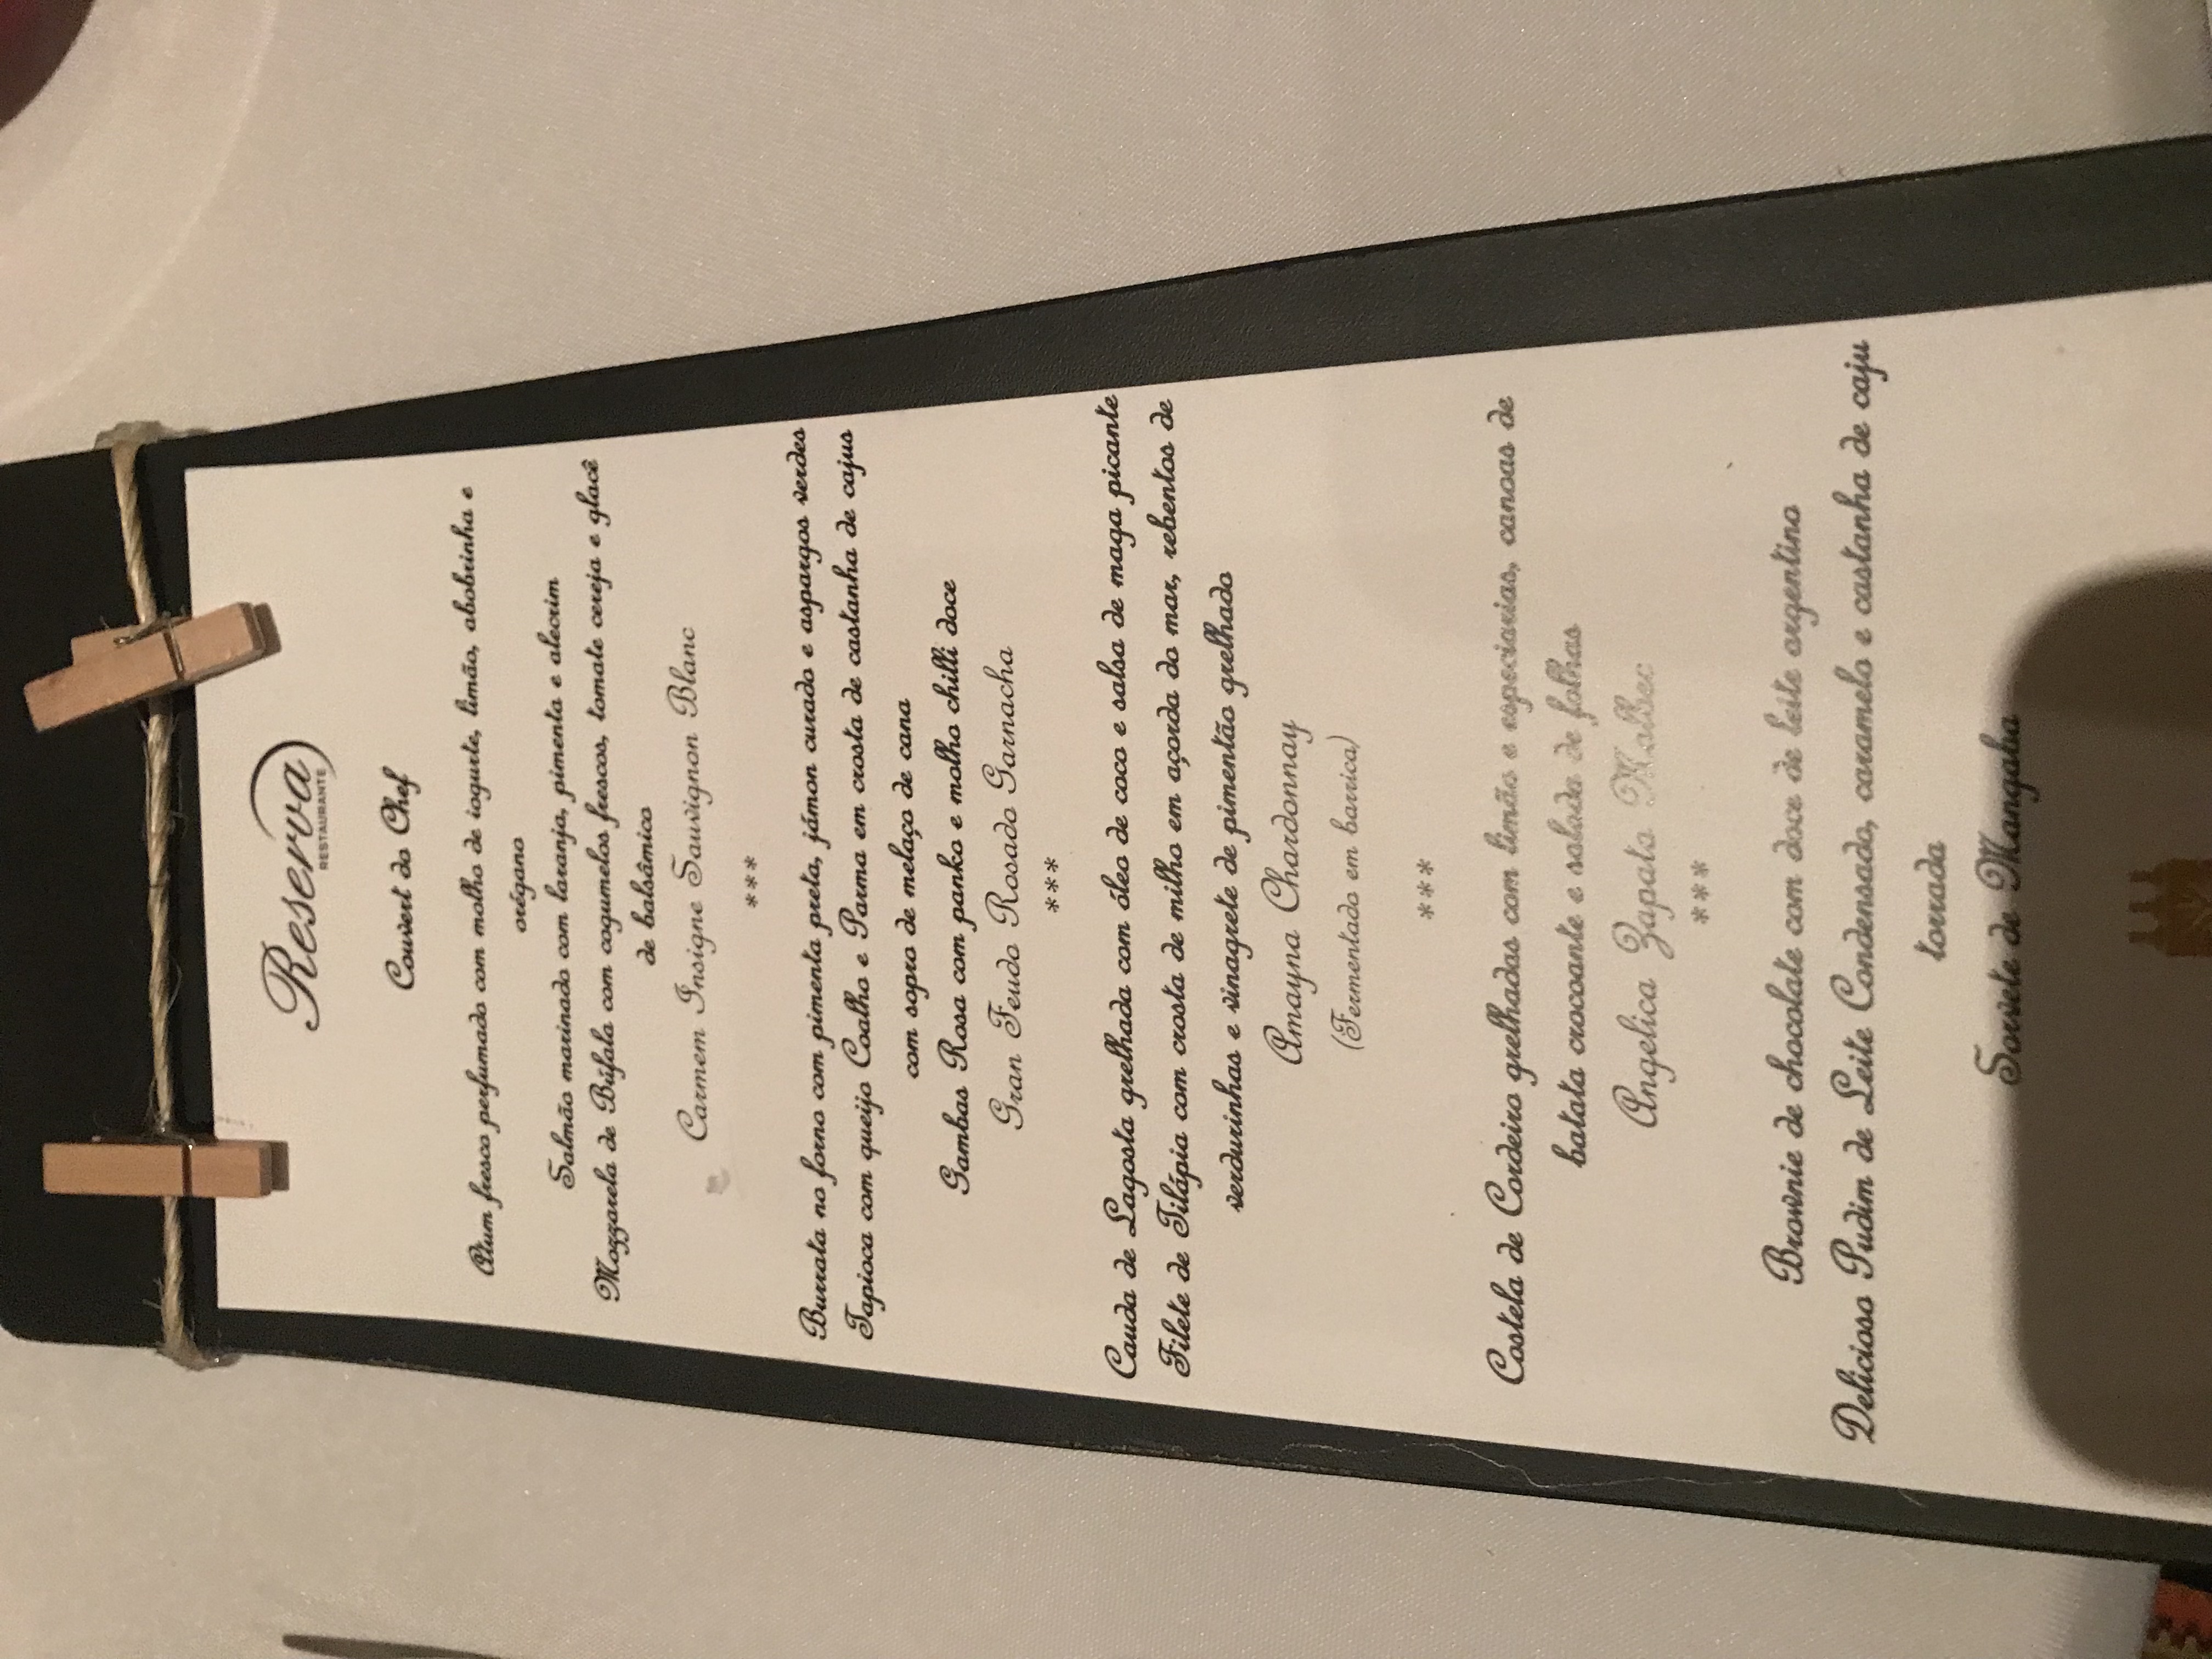 Reserva
RESTAURANTE
Couvert do Chef
Atum fresco perfumado com molho de iogurte, limão, abobrinha e
orégano
Salmão marinado com laranja, pimenta e alecrim
Mozzarela de Búfala com cogumelos frescos, tomate cereja e glacê
de balsâmico
Carmem Insigne Sauvignon Blanc
***
Burrata no forno com pimenta preta, jámon curado e aspargos verdes
Tapioca com queijo Coalho e Parma em crosta de castanha de cajus
com sopro de melaço de cana
Gambas Rosa com panko e molho chilli doce
Gran Feudo Rosado Garnacha
***
Cauda de Lagosta grelhada com óleo de coco e salsa de maga picante
Filete de Tilápia com crosta de milho em açorda do mar, rebentos de
verdurinhas e vinagrete de pimentão grelhado
Amayna Chardonnay
(Fermentado em barrica)
***
Costela de Cordeiro grelhadas com limão e especiarias, canoas de
batata crocoante e salada de folhas
Angelica Zapata Malbec
***
Brownie de chocolate com doce de leite argentino
Delicioso Pudim de Leite Condensado, caramelo e castanha de caju
torrada
Sorvete de Mangaba